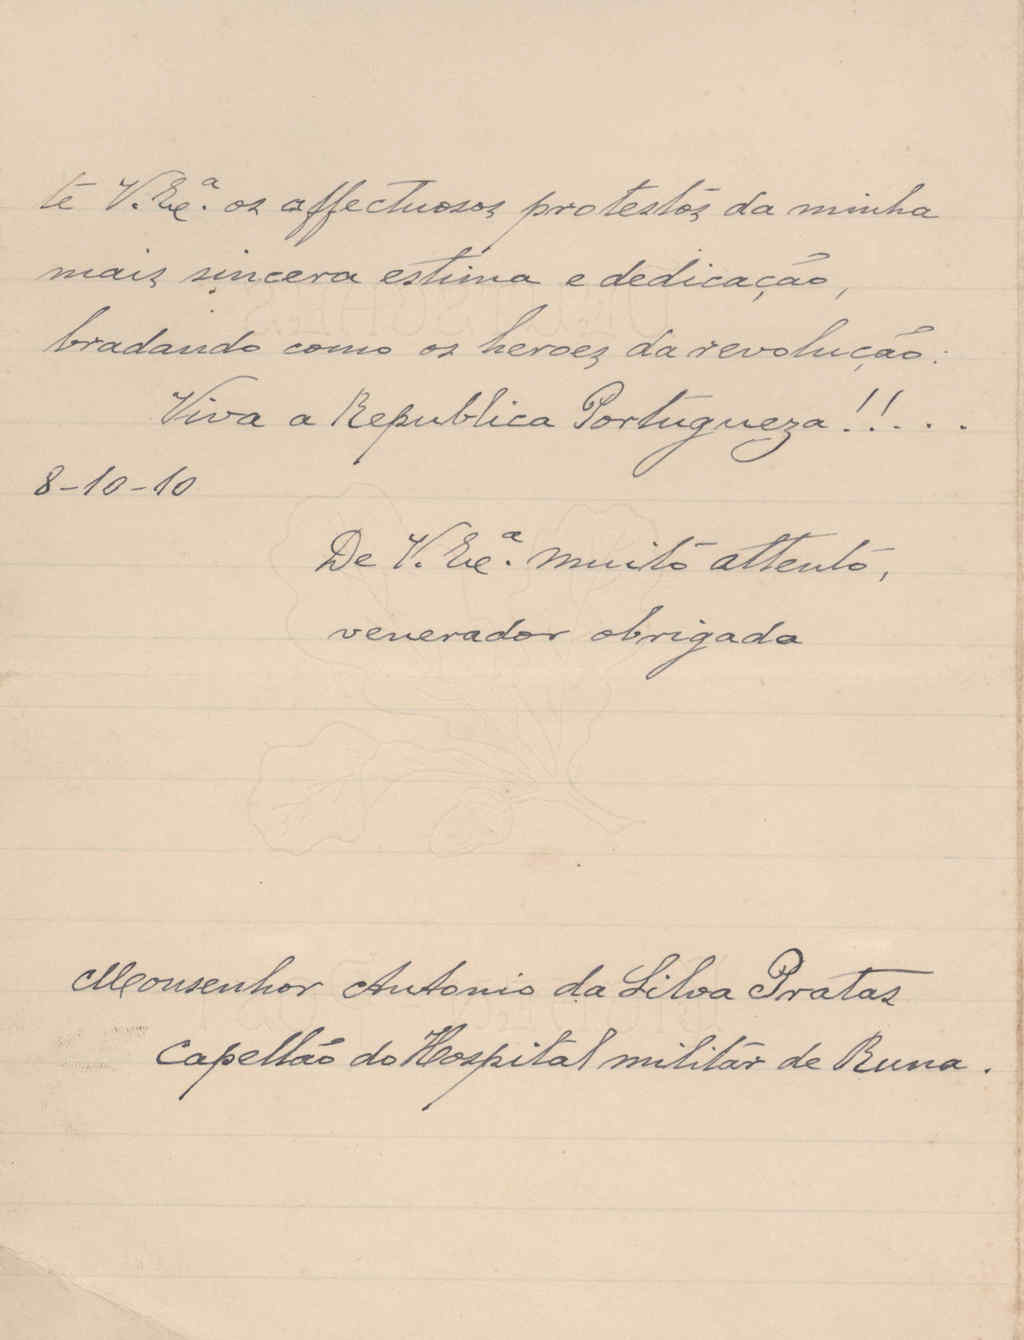 te V. Exª. os affectuosos protestos da minha
mais sincera estima e dedicação,
bradando como os heroes da revolução:
Viva a Republica Portugueza!!...
8-10-10
De V. Exª. muito attento,
venerador obrigado
Monsenhor Antonio da Silva Pratas
Capellão do Hospital militar de Runa.